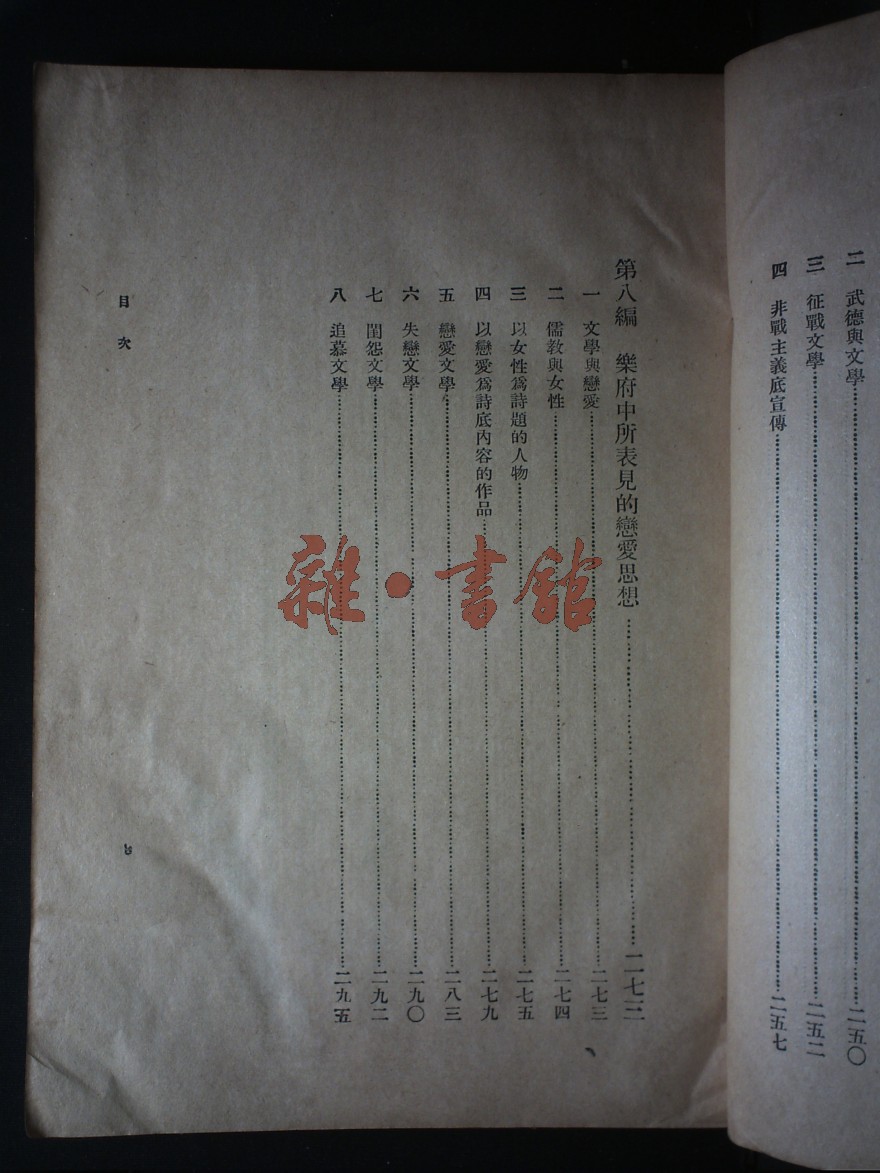 二　武德與文學……二五〇
三　征戰文學……二五二
四　非戰主義底宣傳……二五七
第八編　樂府中所表見的戀愛思想……二七三
一　文學與戀愛……二七三
二　儒教與女性……二七四
三　以女性爲詩題的人物……二七五
四　以戀愛爲詩底內容的作品……二七九
五　戀愛文學……二八三
六　失戀文學……二九〇
七　閨怨文學……二九二
八　追慕文學……二九五
目次
雜·書館